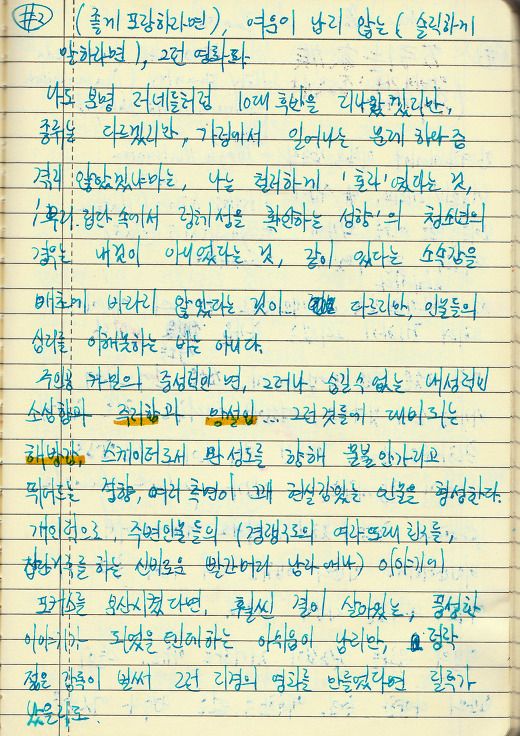 #2
(좋게 포장하라면), 여운이 남지 않는 (솔직하게
말하라면), 그런 영화다.
나도 분명 저네들처럼 10대 후반을 지나왔겠지만,
종류는 다르겠지만, 가정에서 일어나는 문제 하나쯤
겪지 않았겠냐마는, 나는 철저하게 '혼자'였다는 것,
'무리 집단 속에서 정체성을 확인하는 성향'의 청소년의
경우는 내것이 아니었다는 것, 같이 있다는 소속감을
애초에 바라지 않았다는 것이 다르지만, 인물들의
심리를 이해못하는 바는 아니다.
주인공 카밀의 중성적인 면, 그러나 숨길수 없는 내성적인
소심함과 주저함과 망설임... 그런것들에 대비되는
해방감, 스케이터로서 완성도를 향해 물불안가리고
뛰어드는 성향, 여러 측면이 꽤 현실감있는 인물을 형성한다.
개인적으로, 주변인물들의 (경쟁구도의 여자 또래 친구들,
사진찍기를 하는 신비로운 빨간머리 남자애나) 이야기에
포커스를 분산시켰다면, 훨씬 결이 살아있는, 풍성한
이야기가 되었을 텐데하는 아쉬움이 남지만, 정작
젊은 감독이 벌써 그런 지경의 영화를 만들었다면 질투가
났을지도.